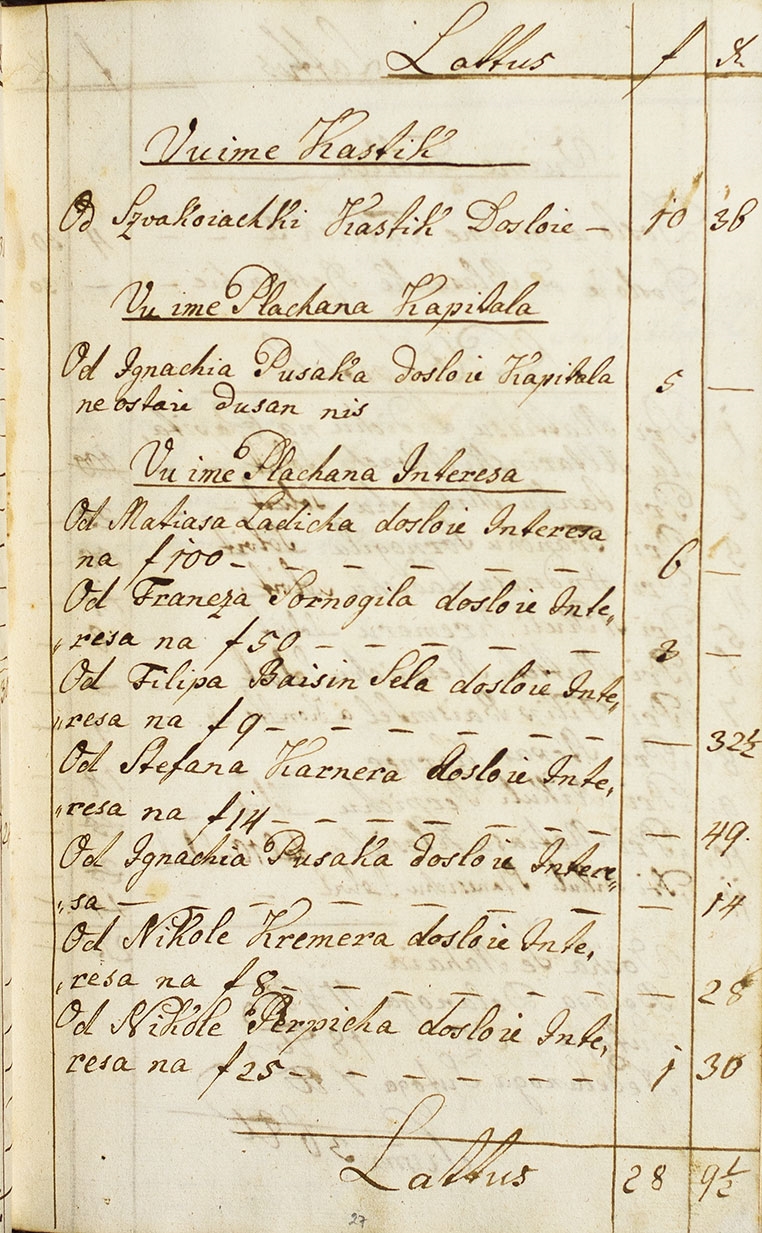 Lattus f xr
Vu ime Kastik
Od Szvakoiachki Kastik Dosloie — 10 36
Vu ime Plachana Kapitala
Od Ignachia Pusaka dosloie Kapitala
ne ostaie dusan nis 5 —
Vu ime Plachana Interesa
Od Matiasa Ladicha dosloie Interesa
na f 100 – – – – – – 6 —
Od Franeza Sornogila dosloie Inte„
„resa na f 50 – – – – – – 3 —
Od Filipa Baisin Sela dosloie Inte„
„resa na f 9 – – – – – – — 32½
Od Stefana Karnera dosloie Inte„
„resa na f 14 – – – – – – — 49.
Od Ignachia Pusaka dosloie Intere„
„sa – – – – – – – – — 14
Od Nikole Kremera dosloie Inte„
„resa na f 8 – – – – – – — 28
Od Nikole Perpicha dosloie Inte„
resa na f 25 – – – – – – 1 30
Lattus 28 9½
27